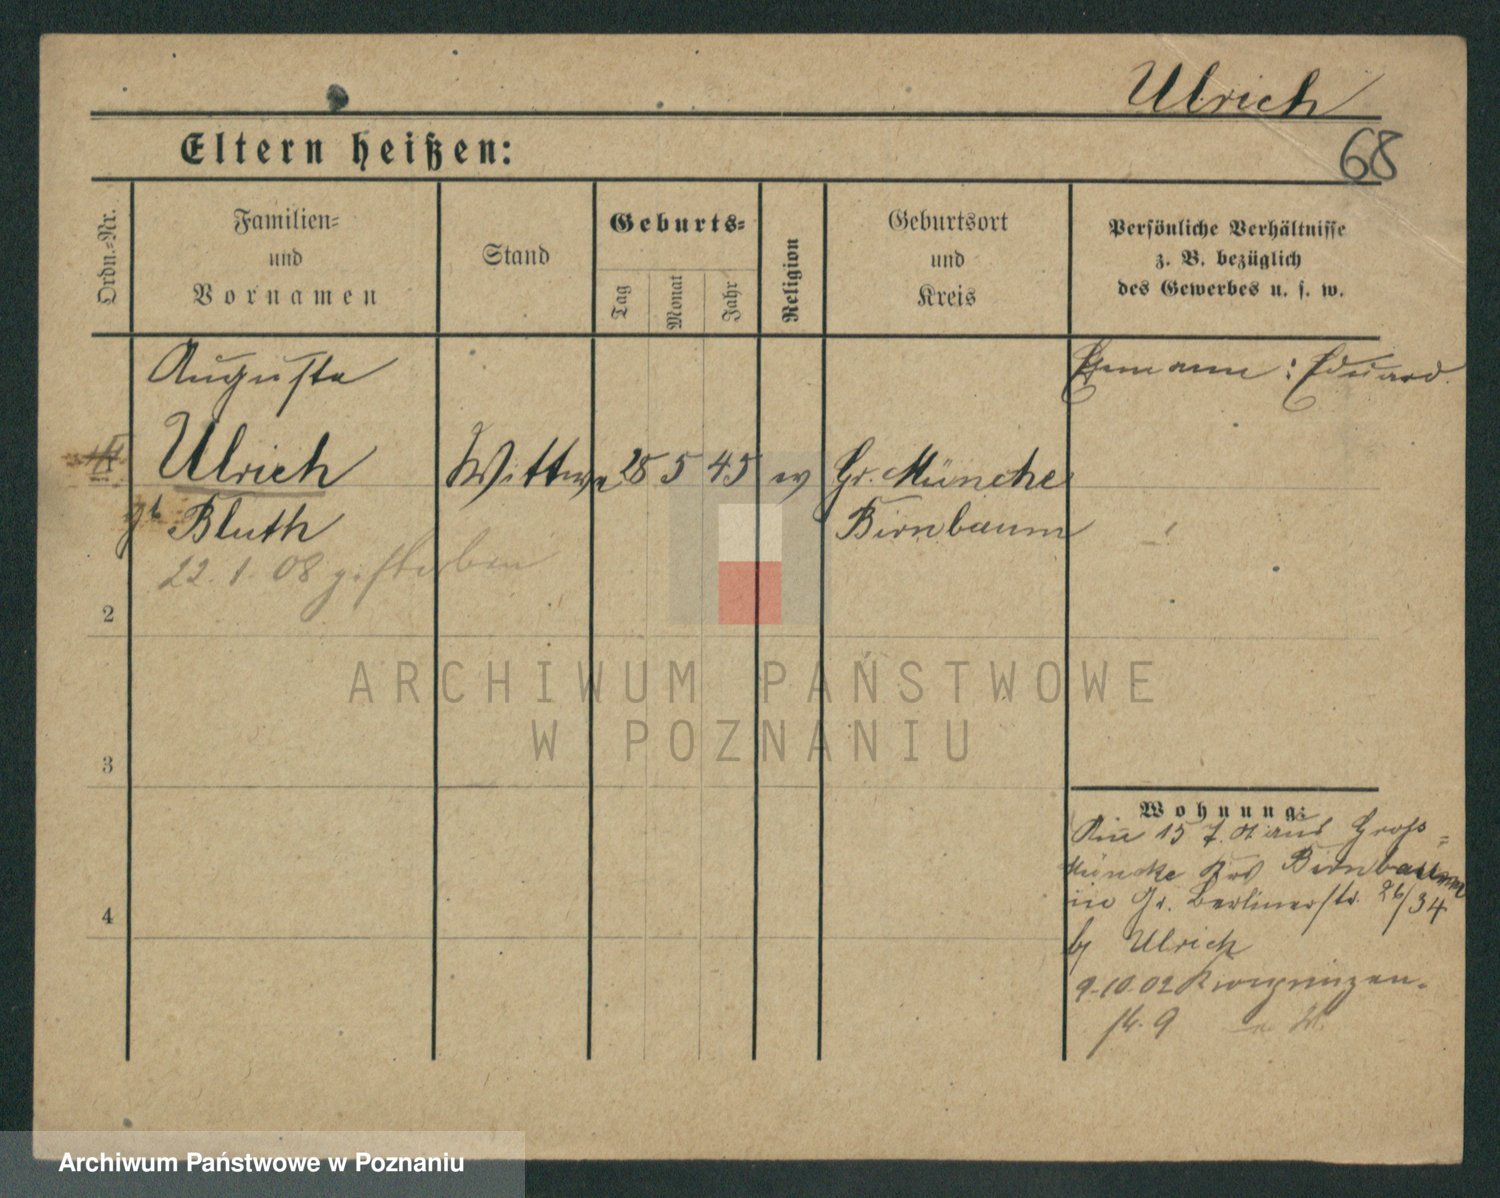 Ulrich
68
Eltern heißen:
Ordn.-Nr.
Familien-
und
Vornamen
Stand
Geburts-
Tag
Monat
Jahr
Religion
Geburtsort
und
Kreis
Persönliche Verhältnisse
z. B. bezüglich
des Gewerbes u. s. w.
Auguste
Ehemann: Eduard.
Ulrich
Wittwe 28 5 45 ev Gr. Münche
gb Bluth
Birnbaum
22. 1. 08 gestorben
2
3
4
ARCHIWUM PAŃSTWOWE
W POZNANIU
Wohnung:
15 7. 01 aus Gross-
Müncke Krs Birnbaum
in Gr. Berlinerstr. 26/34
bj Ulrich
9.10.02
st. 9
Archiwum Państwowe w Poznaniu